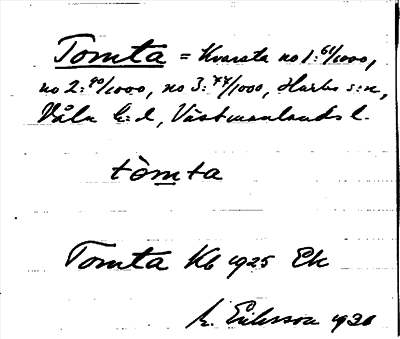 Tomta = Kvarsta no 1:61/1000,
no 2:90/1000, no 3:44/1000, Harbo s:n,
Våla h:d, Västmanlands l.
tòmta
Tomta Kb 1925 Ek
M. Eriksson 1926